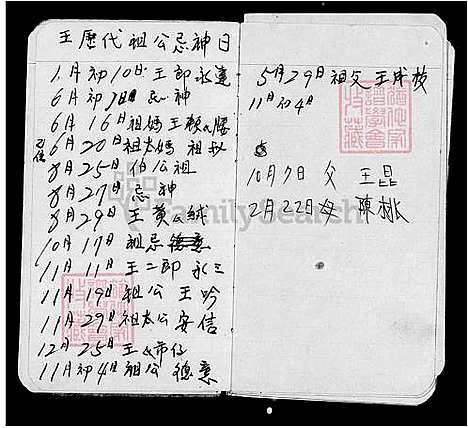 王歷代祖公忌神日
1月初10日 王郎永達
6月初1日 忌神
6月16日 祖媽王賴氏腰
6月20日 祖太媽
8月25日 伯公祖
8月27日 忌神
8月29日 王黃公絨
10月17日 祖忌
11月11日 王二郎永三
11月19日 祖公王吟
11月29日 祖太公安信
12月25日 王
11月初4日 祖公德意
5月29日 祖父王成枝
11月初4日
10月7日 父 王昆
2月22日 母 陳桃
FamilySearch